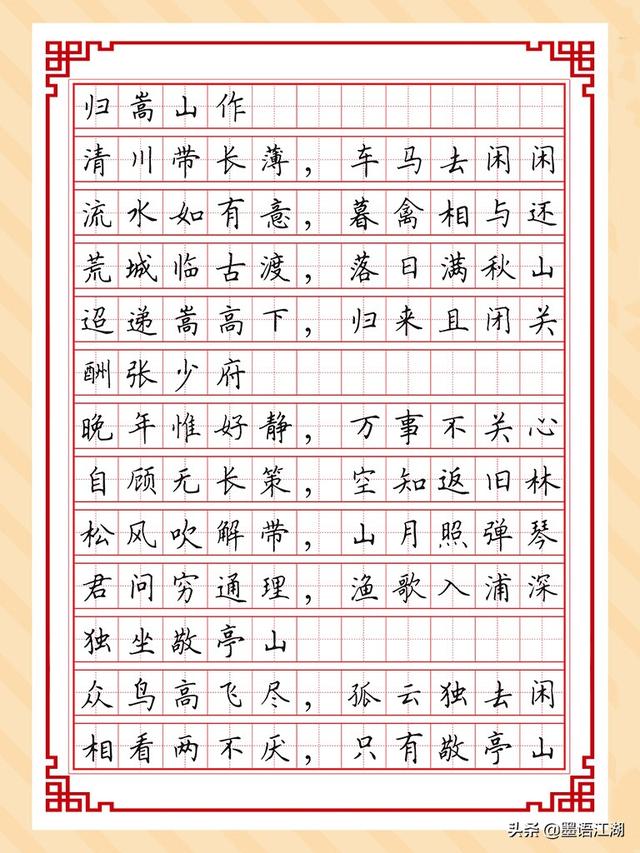 归嵩山作
清川带长薄，车马去闲闲
流水如有意，暮禽相与还
荒城临古渡，落日满秋山
迢递嵩高下，归来且闭关
酬张少府
晚年惟好静，万事不关心
自顾无长策，空知返旧林
松风吹解带，山月照弹琴
君问穷通理，渔歌入浦深
独坐敬亭山
众鸟高飞尽，孤云独去闲
相看两不厌，只有敬亭山
头条@墨语江湖